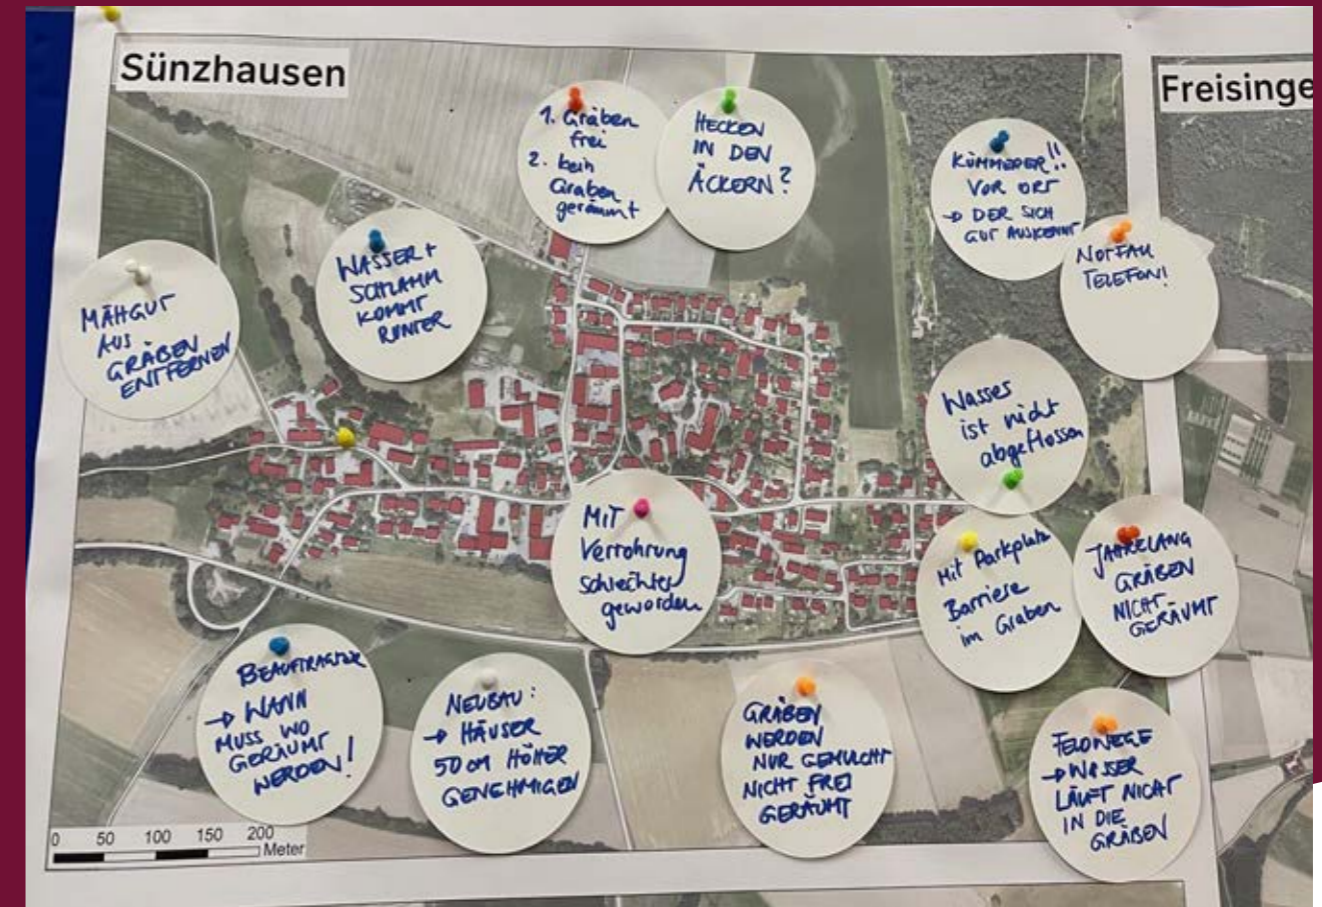 Sünzhausen
Freisinge
1. Gräben
frei
2. kein
Graben
geräumt
HECKEN
IN DEN
ÄCKERN?
KÜMMERER!!
VOR ORT
→ DER SICH
GUT AUSKENNT
NOTFALL
TELEFON!
WASSER +
SCHLAMM
KOMMT
RUNTER
MÄHGUT
AUS
GRÄBEN
ENTFERNEN
Wasser
ist nicht
abgeflossen
MIT
Verrohrung
schlechter
geworden
Mit Parkplatz
Barriere
im Graben
JAHRELANG
GRÄBEN
NICHT
GERÄUMT
BEAUFTRAGTER
→ WANN
MUSS WO
GERÄUMT
WERDEN!
NEUBAU:
→ HÄUSER
50 cm HÖHER
GENEHMIGEN
GRÄBEN
WERDEN
NUR GEMULCHT
NICHT FREI
GERÄUMT
FELDWEGE
→ WASSER
LÄUFT NICHT
IN DIE
GRÄBEN
0 50 100 150 200
Meter